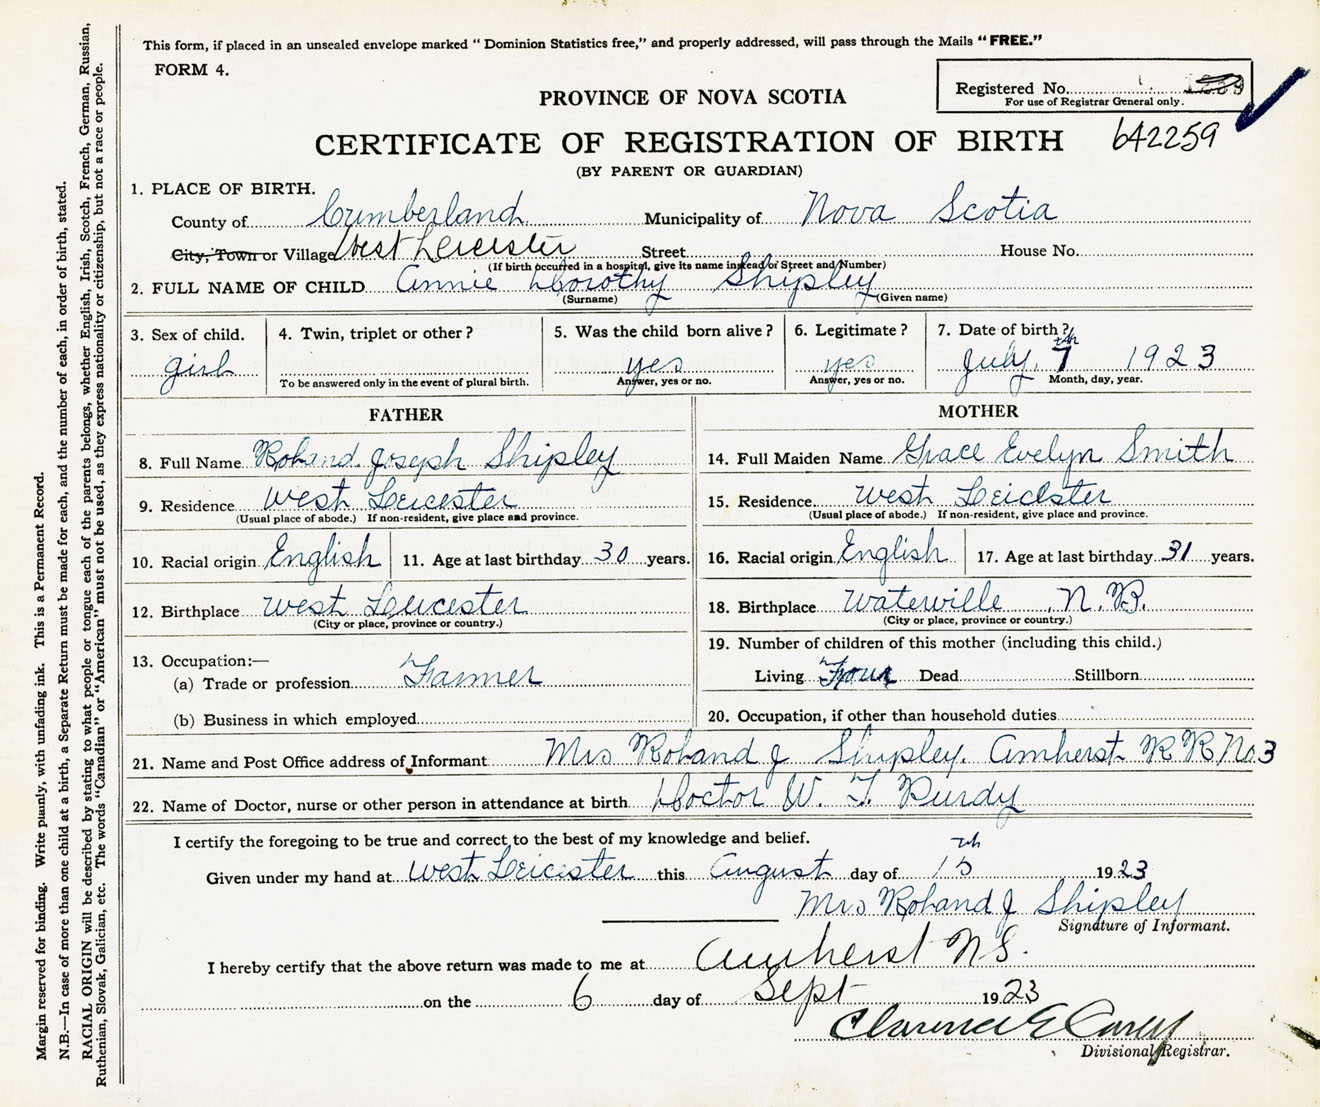 This form, if placed in an unsealed envelope marked "Dominion Statistics free," and properly addressed, will pass through the Mails "FREE."
FORM 4.
Registered No.
For use of Registrar General only.
PROVINCE OF NOVA SCOTIA
CERTIFICATE OF REGISTRATION OF BIRTH 642259
(BY PARENT OR GUARDIAN)
1. PLACE OF BIRTH.
County of Cumberland Municipality of Nova Scotia
City, Town or Village West Leicester Street House No.
(If birth occurred in a hospital, give its name instead of Street and Number)
2. FULL NAME OF CHILD Annie Dorothy Shipley
(Surname) (Given name)
3. Sex of child. 4. Twin, triplet or other? 5. Was the child born alive? 6. Legitimate? 7. Date of birth?
girl yes yes July, 7th 1923
To be answered only in the event of plural birth. Answer, yes or no. Answer, yes or no. Month, day, year.
FATHER MOTHER
8. Full Name Roland Joseph Shipley 14. Full Maiden Name Grace Evelyn Smith
9. Residence West Leicester 15. Residence West Leicester
(Usual place of abode.) If non-resident, give place and province. (Usual place of abode.) If non-resident, give place and province.
10. Racial origin English 11. Age at last birthday 30 years. 16. Racial origin English 17. Age at last birthday 31 years.
12. Birthplace West Leicester 18. Birthplace Waterville, N.B.
(City or place, province or country.) (City or place, province or country.)
19. Number of children of this mother (including this child.)
13. Occupation:—
(a) Trade or profession Farmer Living Four Dead Stillborn
(b) Business in which employed 20. Occupation, if other than household duties
21. Name and Post Office address of Informant Mrs Roland J Shipley. Amherst R R No. 3
22. Name of Doctor, nurse or other person in attendance at birth Doctor W. T. Purdy
I certify the foregoing to be true and correct to the best of my knowledge and belief.
Given under my hand at West Leicester this August day of 15th 1923
Mrs Roland J Shipley
Signature of Informant.
I hereby certify that the above return was made to me at Amherst N S.
on the 6 day of Sept 1923
Clarence E Carey
Divisional Registrar.
Margin reserved for binding. Write plainly, with unfading ink. This is a Permanent Record.
N.B.—In case of more than one child at a birth, a Separate Return must be made for each, and the number of each, in order of birth, stated.
RACIAL ORIGIN will be described by stating to what people or tongue each of the parents belongs, whether English, Irish, Scotch, French, German, Russian,
Ruthenian, Slovak, Galician, etc. The words "Canadian" or "American" must not be used, as they express nationality or citizenship, but not a race or people.